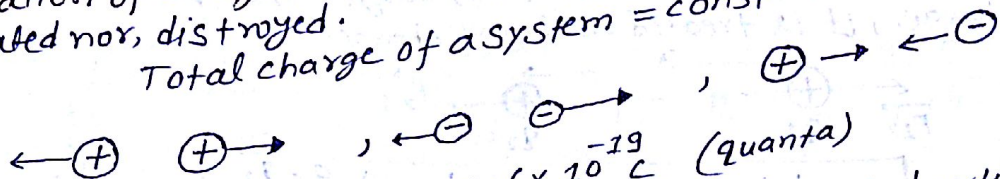 nor, distroyed.
Total charge of a system =
← ⊕ ⊕ → , ← ⊖ ⊖ → , ⊕ → ← ⊖
10⁻¹⁹ C (quanta)